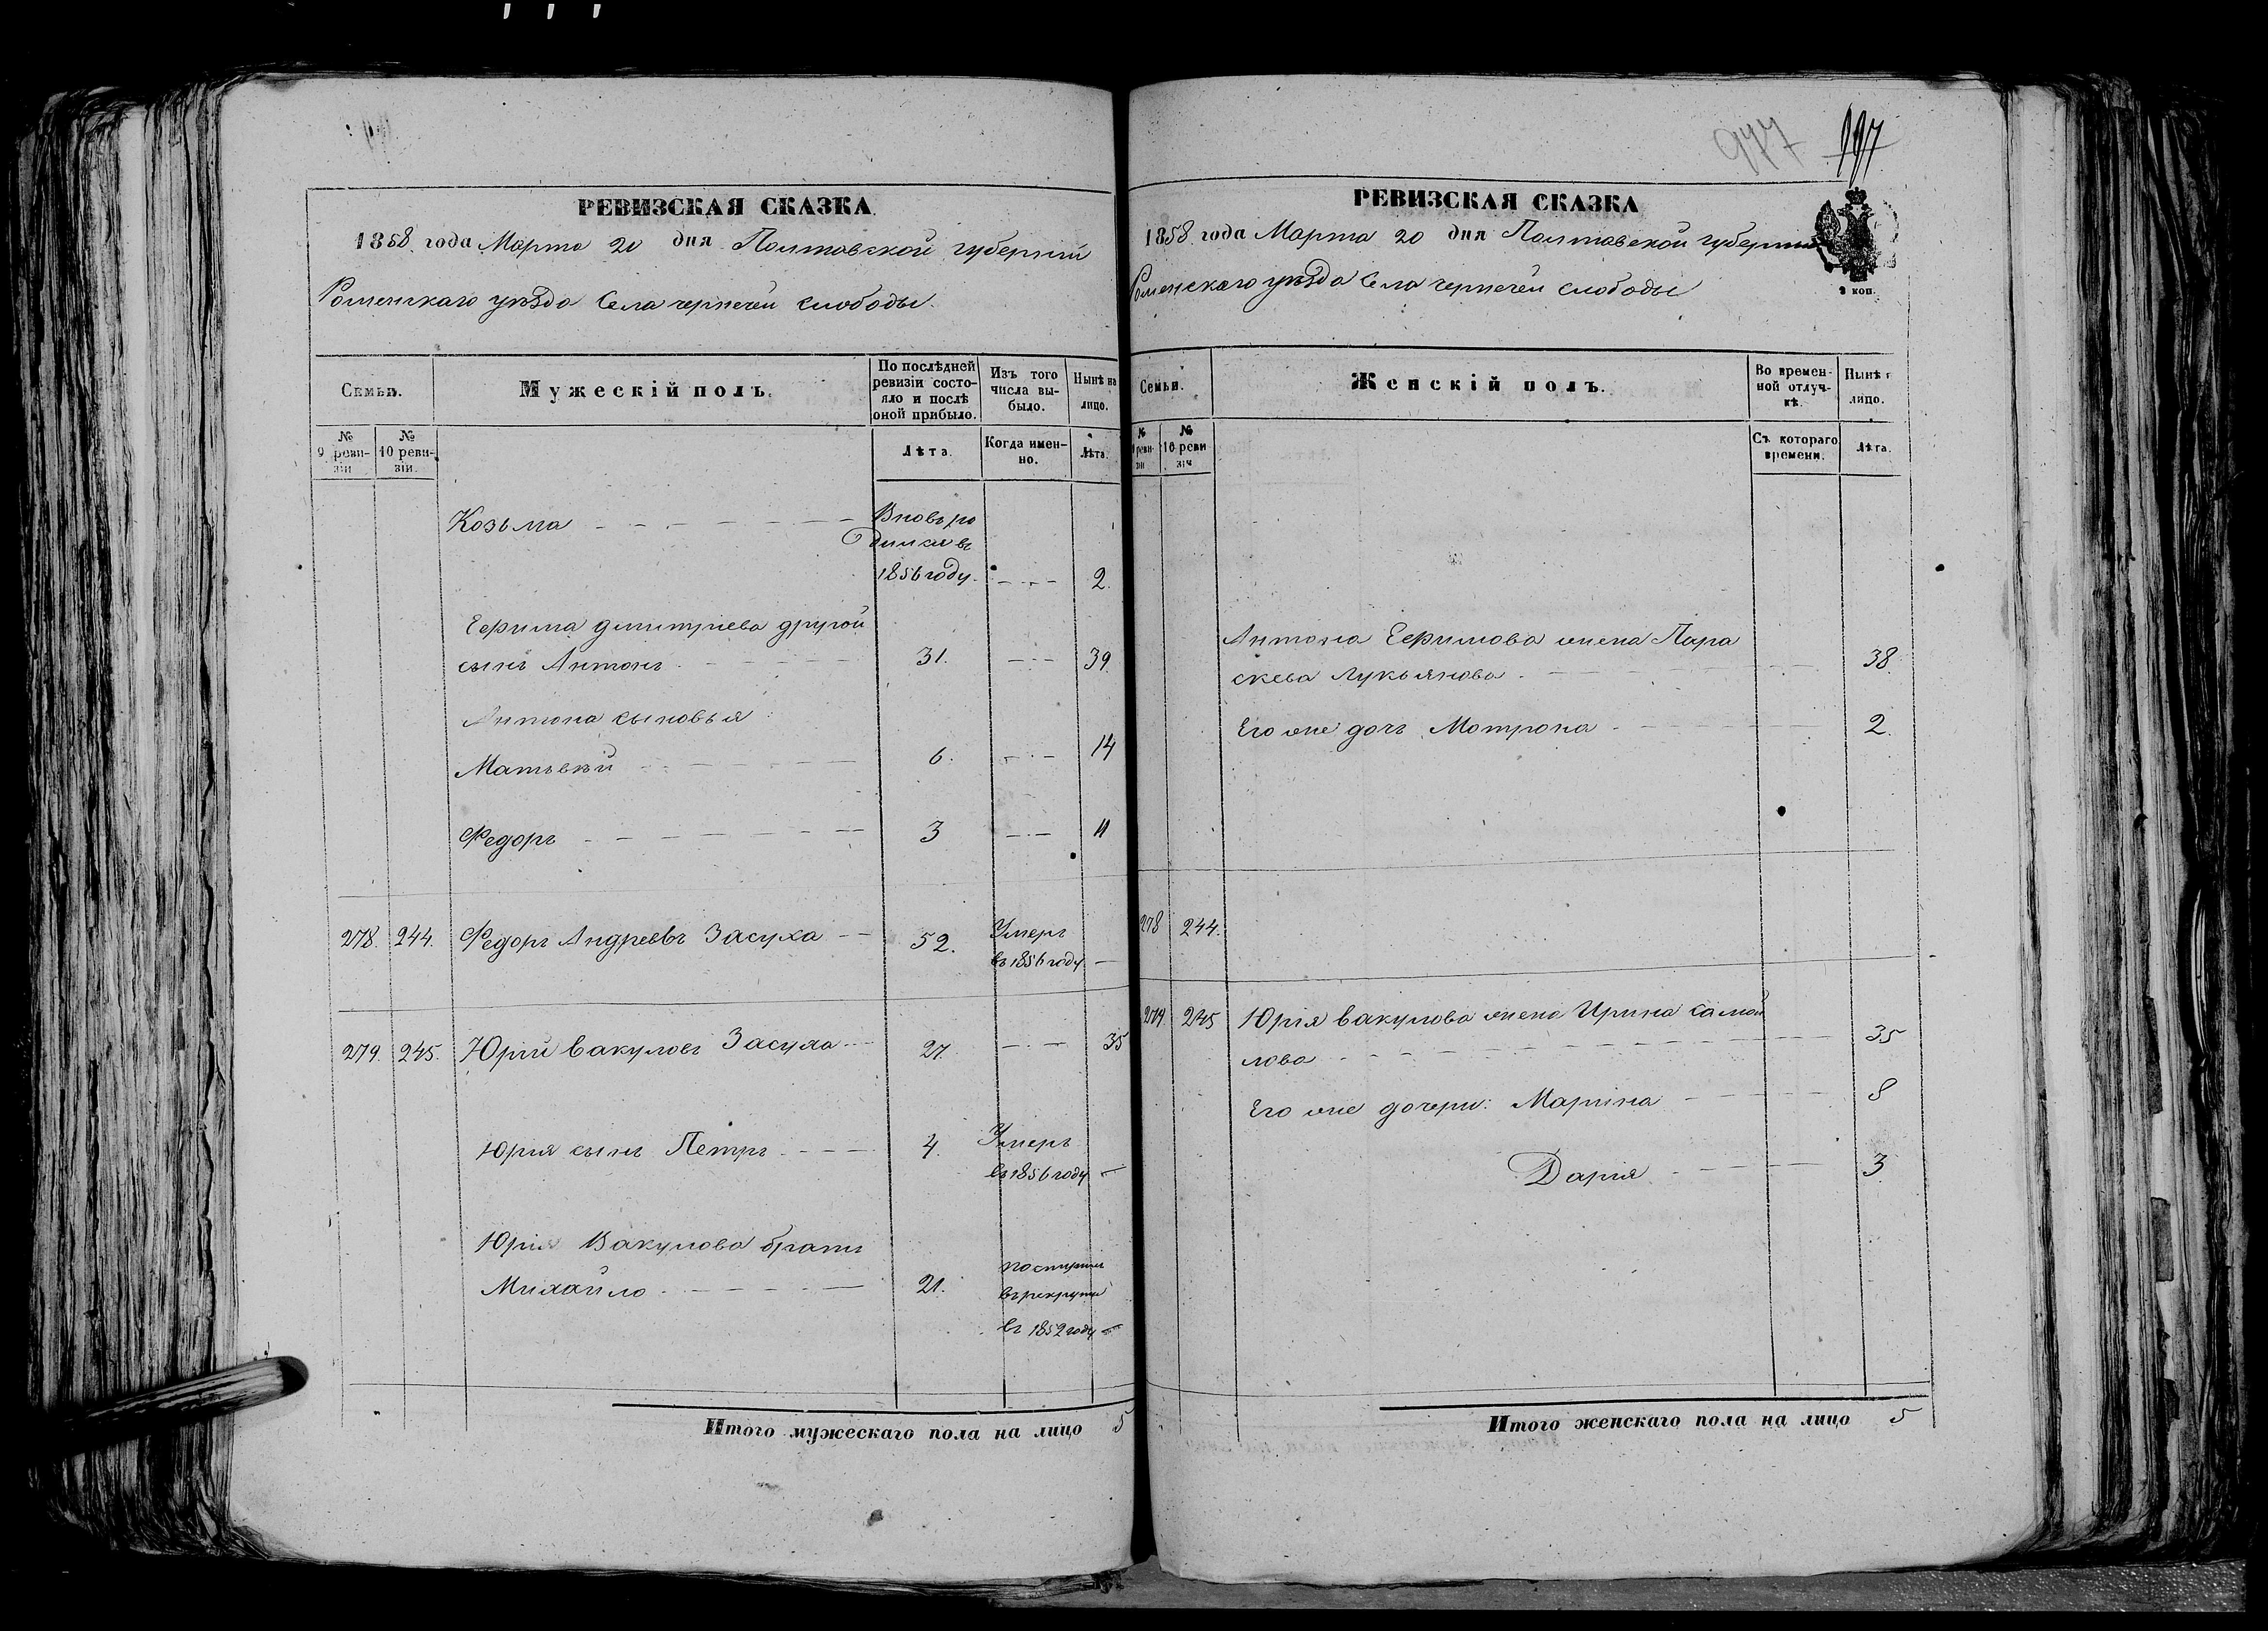 РЕВИЗСКАЯ СКАЗКА
1858 года Марта 20 дня Полтавской губерніи
Роменскаго уѣзда Села чернечей слободы.
Семьи.
Мужескій полъ.
По послѣдней ревизіи состояло и послѣ оной прибыло.
Изъ того числа выбыло.
Нынѣ на лицо.
№ 9 ревизіи
№ 10 ревизіи.
Лѣта.
Когда именно.
Лѣта.
Козьма
Вновь ро
дился въ
1856 году.
2.
Ефима дмитріева другой
сынъ Антонъ
31.
39.
Антона сыновья:
Матвѣй
6.
14
Федоръ
3
11
278. 244. Федоръ Андреевъ Засуха
52.
Умеръ
въ 1856 году
279. 245. Юрій Вакуловъ Засуха
27.
35
Юрія сынъ Петръ
4.
Умеръ
въ 1856 году
Юрія Вакулова братъ
Михайло
21.
въ рекруты
въ 1852 году
Итого мужескаго пола на лицо 5
977
РЕВИЗСКАЯ СКАЗКА
1858 года Марта 20 дня Полтавской губерніи
Роменскаго уѣзда Села чернечей слободы
3 коп.
Семьи.
Женскій полъ.
Во временной отлучкѣ.
Нынѣ
лицо.
№ 9 ревизіи
№ 10 ревизіи
Съ котораго времени.
Лѣта.
Антона Ефимова жена Пара
скева Лукьянова
38.
Его же дочь Мотрона
2.
278 244.
279 245 Юрія Вакулова жена Ирина Самой
лова
35
Его же дочери: Марина
8
Дарія
3.
Итого женскаго пола на лицо 5